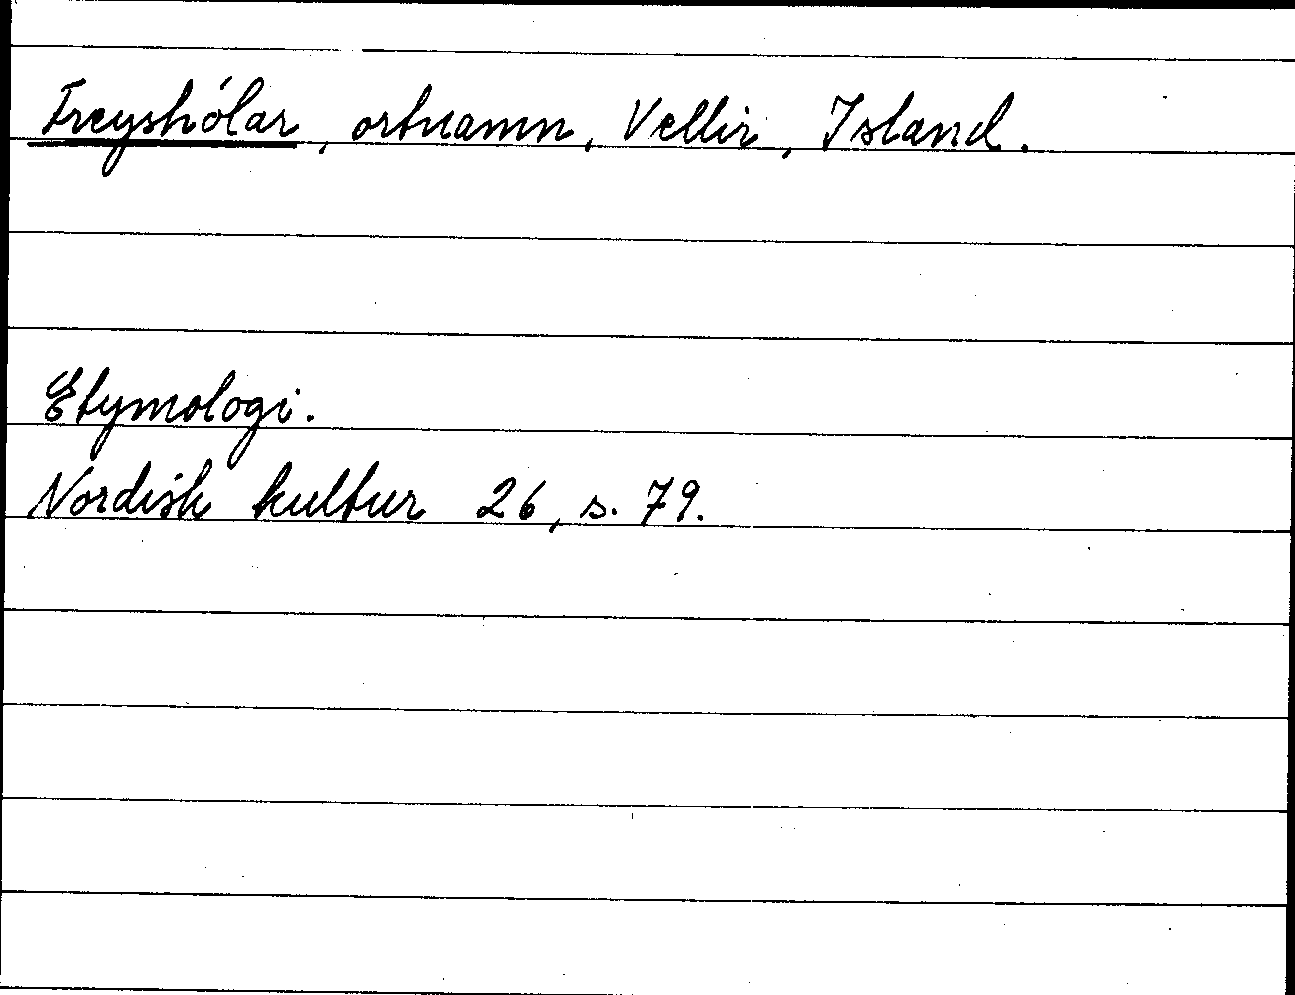 Freyshólar, ortnamn, Vellir, Island.
Etymologi.
Nordisk kultur 26, s. 79.